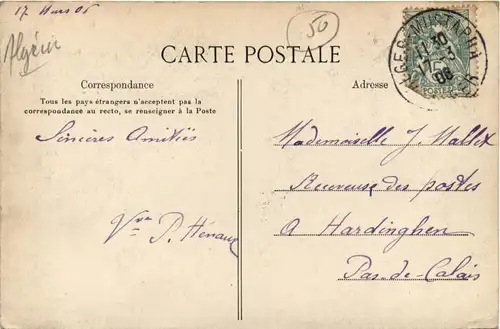 17 Mars 06
Algérie
50
CARTE POSTALE
ALGER-MUSTAPHA
11 30
17 -3
06
POSTES
Correspondance
Adresse
Tous les pays étrangers n'acceptent pas la
correspondance au recto, se renseigner à la Poste
Sincères Amitiés
Vve P. Hénaux
Mademoiselle J. Mallet
Receveuse des postes
à Hardinghen
Pas-de-Calais